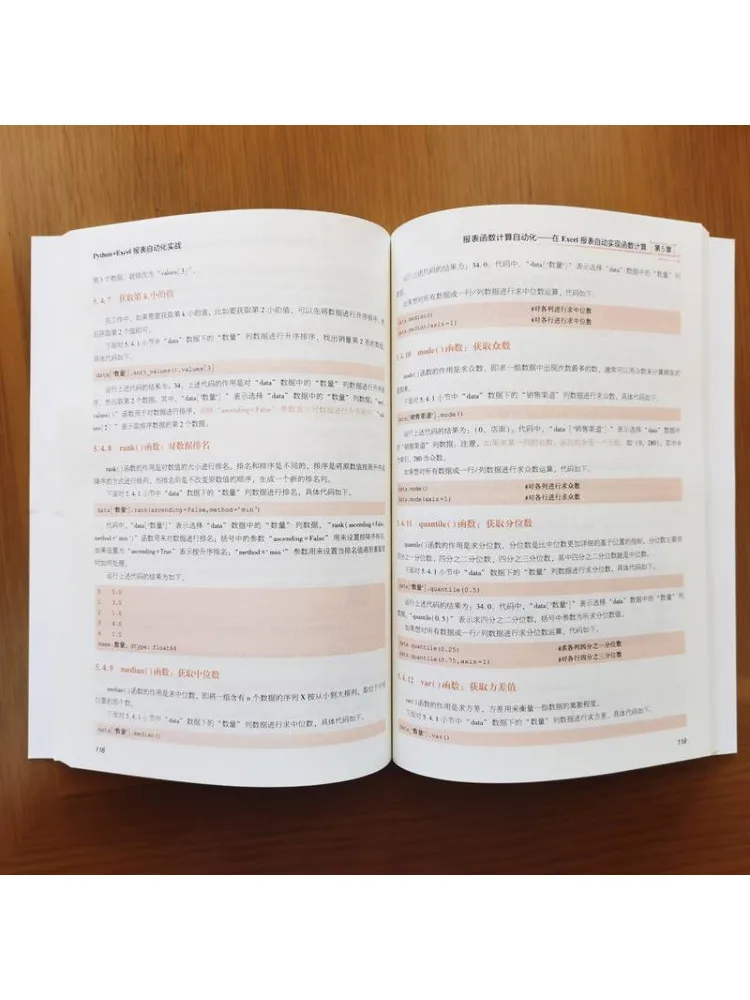 Python+Excel 报表自动化实战
第3个数据，就修改为“values[3]”。
5.4.7 获取第 k 小的值
在工作中，如果需要获取第 k 小的值，比如要获取第 2 小的值，可以先将数据进行升序排序，然
后获取第 2 个值即可。
下面对 5.4.1 小节中“data”数据下的“数量”列数据进行升序排序，找出销量第 2 差的数据，
具体代码如下。
data['数量'].sort_values().values[2]
运行上述代码的结果为：34。上述代码的作用是对“data”数据中的“数量”列数据进行升序排
序，然后取第 2 个数据。其中，“data['数量']”表示选择“data”数据中的“数量”列数据；“sort_
values()”函数用于对数据进行排序，
2]”表示取排序数据的第 2 个数据。
5.4.8 rank()函数：对数据排名
rank()函数的作用是对数值的大小进行排名。排名和排序是不同的，排序是将原数值按照升序或
降序的方式进行排列，而排名则是不改变原数值的顺序，生成一个新的排名列。
下面对 5.4.1 小节中“data”数据下的“数量”列数据进行排名，具体代码如下。
data['数量'].rank(ascending=False,method='min')
代码中，“data['数量']”表示选择“data”数据中的“数量”列数据，“rank(ascending=False,
method='min')”函数用来对数据进行排名；括号中的参数“ascending=False”用来设置按降序排名，
如果设置为“ascending=True”表示按升序排名；“method='min'”参数用来设置当排名值遇到重复值
时如何处理。
运行上述代码的结果如下。
0 5.0
1 3.0
2 1.0
3 4.0
4 1.0
Name:数量, dtype: float64
5.4.9 median()函数：获取中位数
median()函数的作用是求中位数，即将一组含有 n 个数据的序列 X 按从小到大排列，取位于中间
位置的那个数。
下面对 5.4.1 小节中“data”数据下的“数量”列数据进行求中位数，具体代码如下。
data['数量'].median()
118
报表函数计算自动化——在 Excel 报表自动实现函数计算 第5章
运行上述代码的结果为：34.0。代码中，“data['数量']”表示选择“data”数据中的“数量”列
数据。
如果想对所有数据或一行/列数据进行求中位数运算，代码如下。
data.median() #对各列进行求中位数
data.median(axis=1) #对各行进行求中位数
5.4.10 mode()函数：获取众数
mode()函数的作用是求众数，即求一组数据中出现次数最多的数，通常可以用众数来计算顾客的
下面对 5.4.1 小节中“data”数据下的“销售渠道”列数据进行求众数，具体代码如下。
data['销售渠道'].mode()
运行上述代码的结果为：(0，店面)。代码中，“data['销售渠道']”表示选择“data”数据中
的“销售渠道”列数据。注意，
如果想对所有数据或一行/列数据进行求众数运算，代码如下。
data.mode() #对各列进行求众数
data.mode(axis=1) #对各行进行求众数
5.4.11 quantile()函数：获取分位数
quantile()函数的作用是求分位数，分位数是比中位数更加详细的基于位置的指标，分位数主要有
四分之一分位数、四分之二分位数、四分之三分位数，其中四分之二分位数就是中位数。
下面对 5.4.1 小节中“data”数据下的“数量”列数据进行求分位数，具体代码如下。
data['数量'].quantile(0.5)
运行上述代码的结果为：34.0。代码中，“data['数量']”表示选择“data”数据中的“数量”列
数据，“quantile(0.5)”表示求四分之二分位数，括号中参数为所求分位数值。
如果想对所有数据或一行/列数据进行求分位数运算，代码如下。
data.quantile(0.25) #求各列四分之一分位数
data.quantile(0.75,axis=1) #对各行四分之三分位数
5.4.12 var()函数：获取方差值
var()函数的作用是求方差，方差用来衡量一组数据的离散程度。
下面对 5.4.1 小节中“data”数据下的“数量”列数据进行求方差，具体代码如下。
data['数量'].var()
119